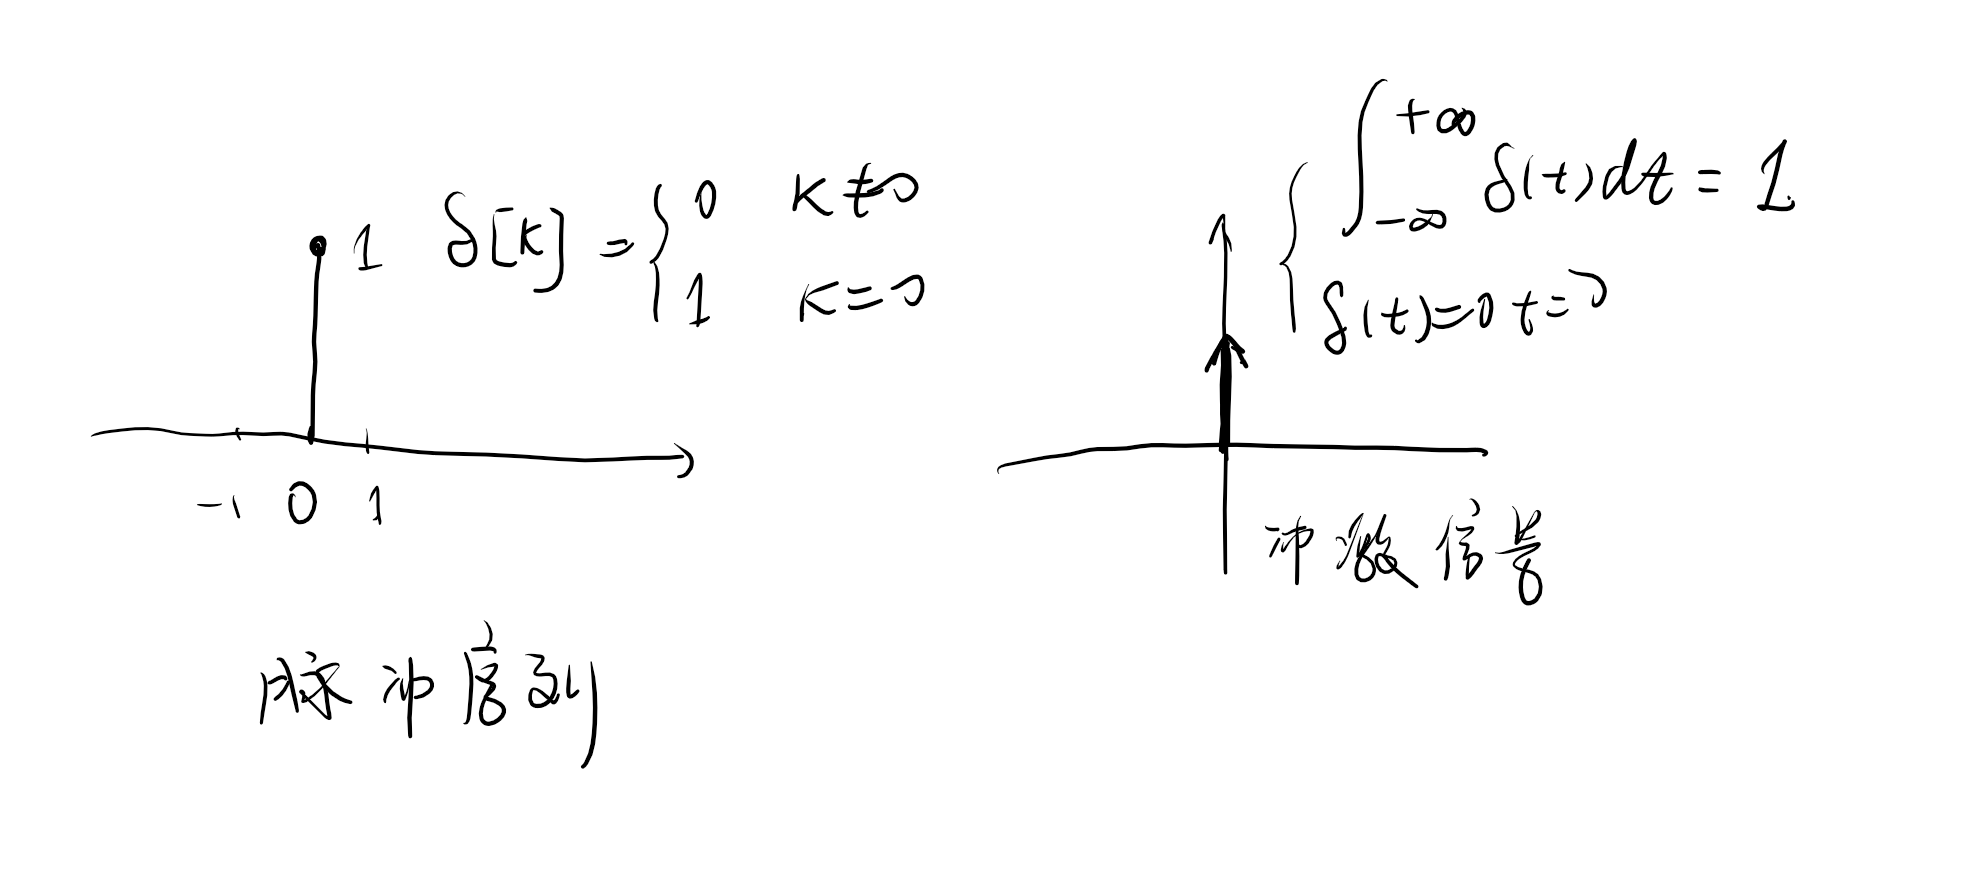 1 δ[k] = { 0 k≠0
1 k=0
-1 0 1
脉冲序列
{ ∫_{-∞}^{+∞} δ(t)dt = 1
δ(t)=0 t=0
冲激信号